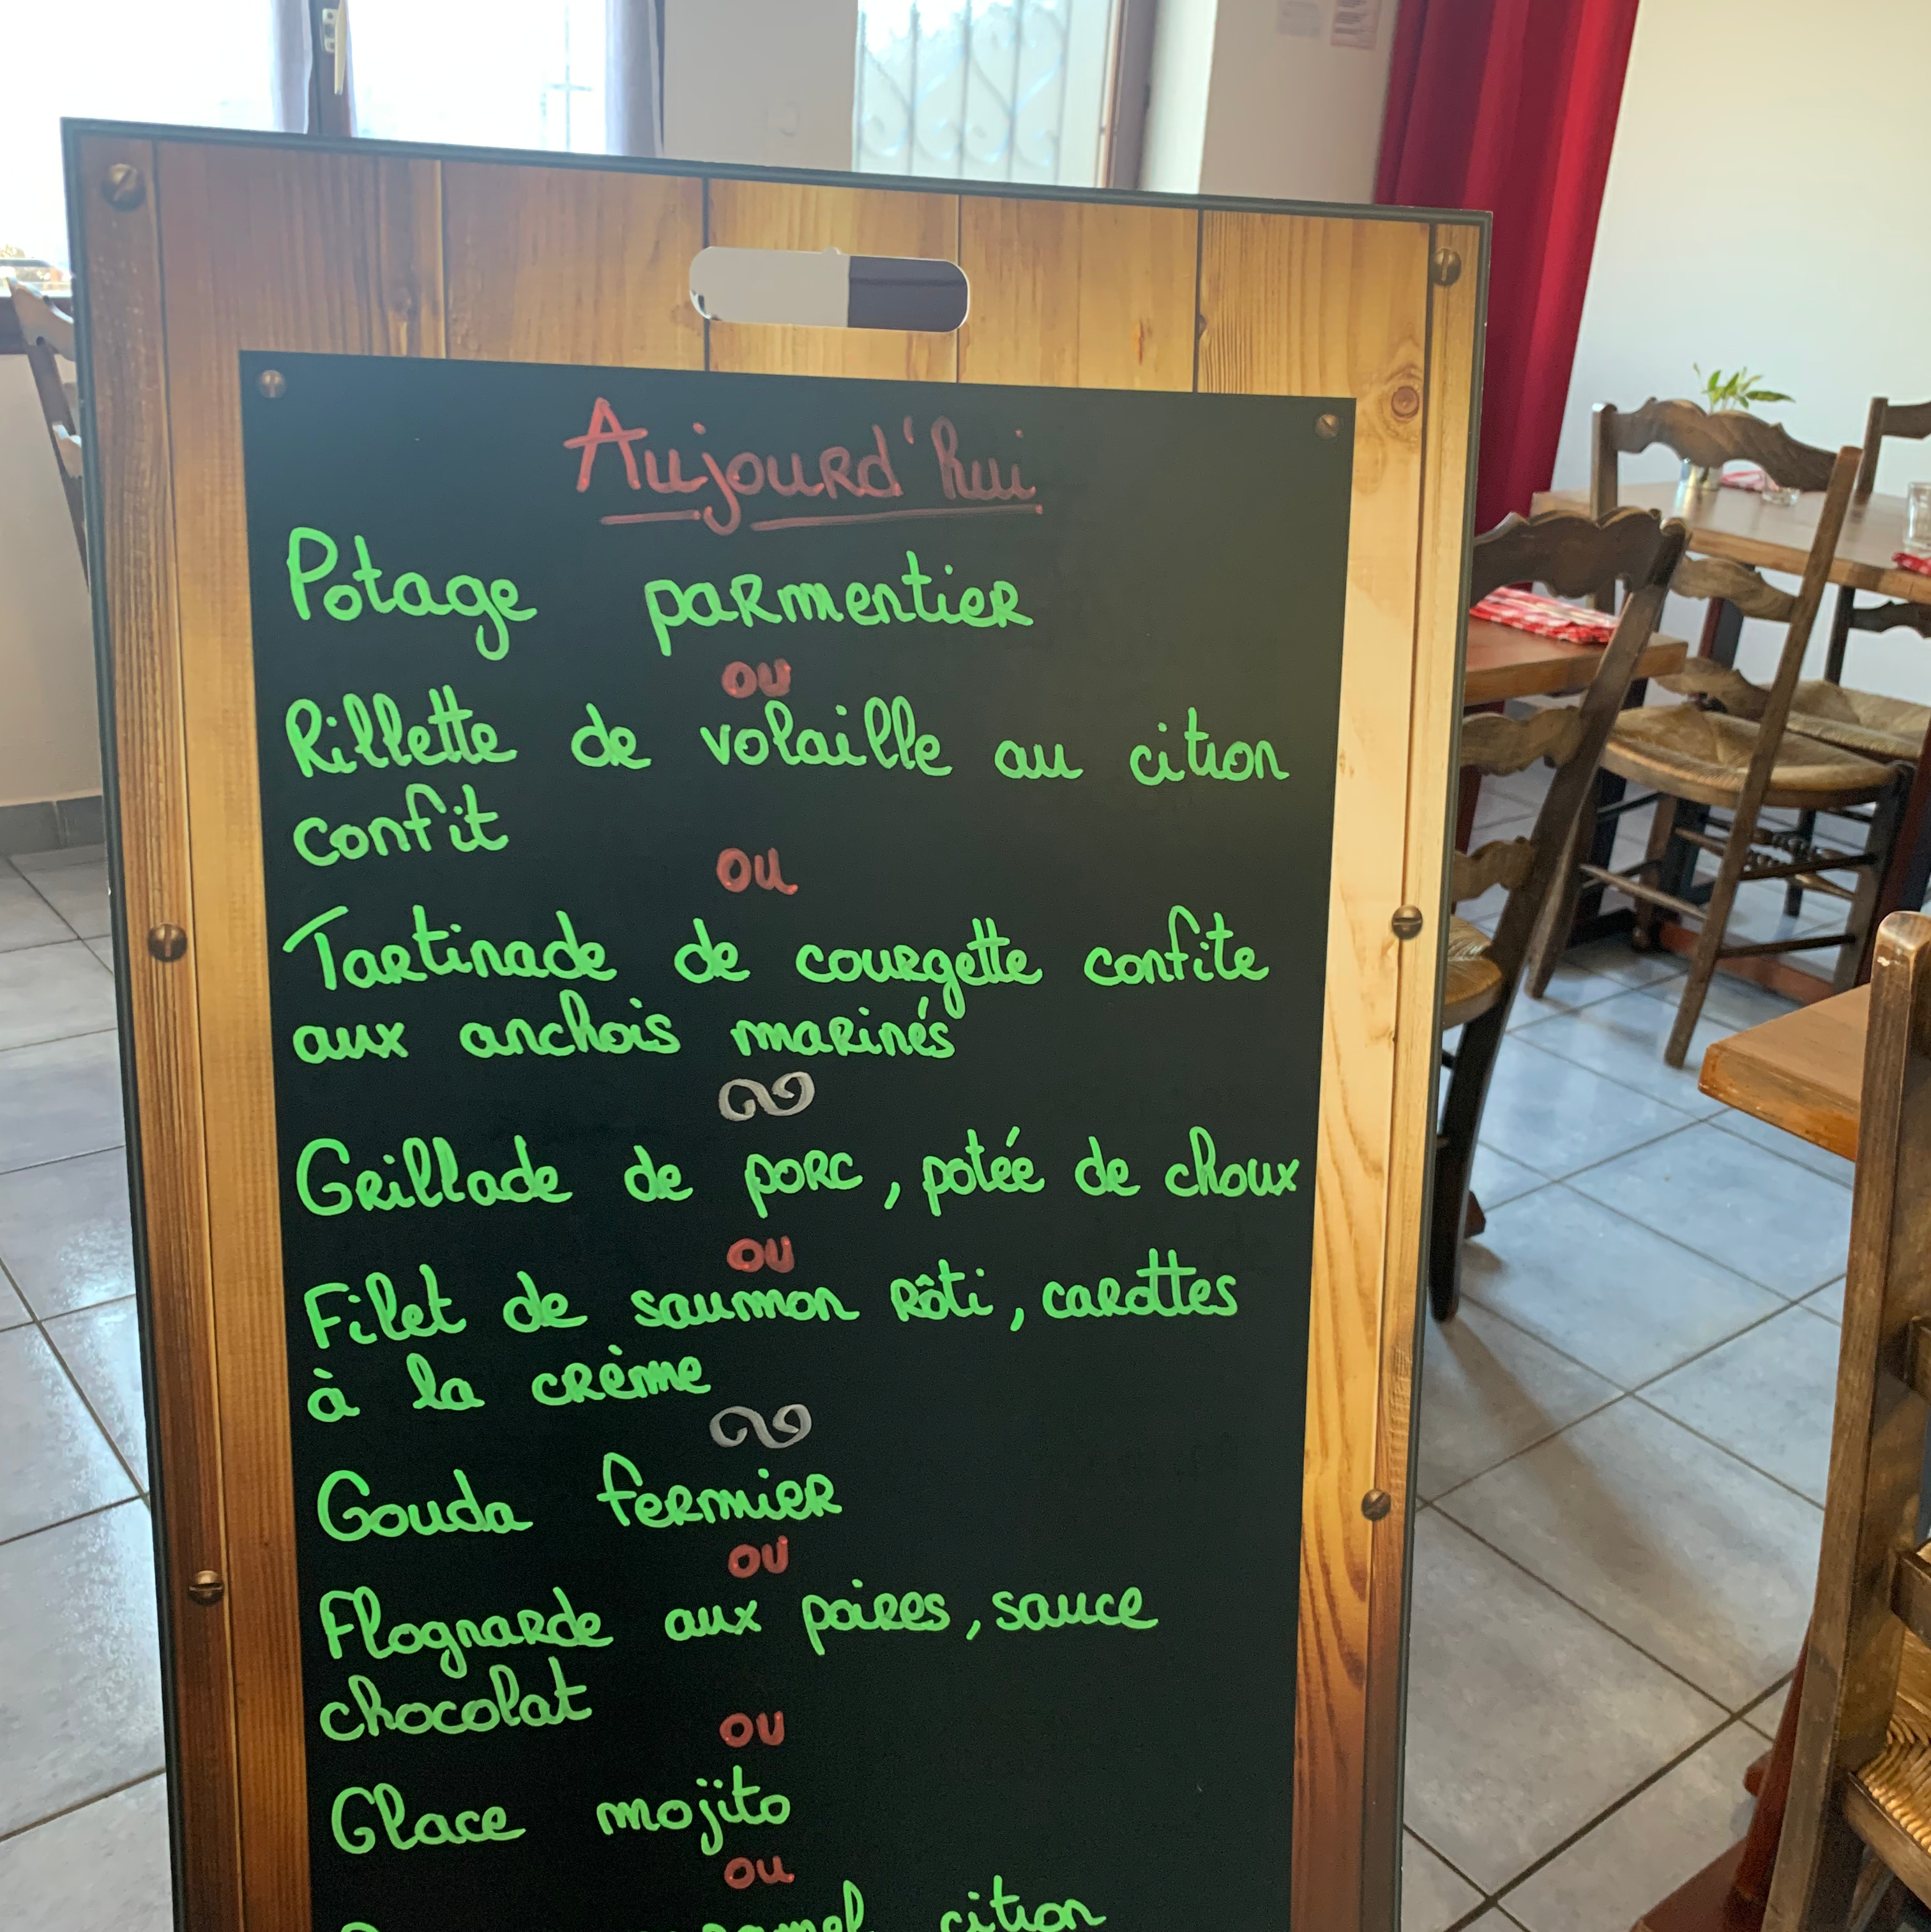 Aujourd'hui
Potage parmentier
ou
Rillette de volaille au citron
confit
ou
Tartinade de courgette confite
aux anchois marinés
Grillade de porc, potée de choux
ou
Filet de saumon rôti, carottes
à la crème
Gouda fermier
ou
Flognarde aux poires, sauce
chocolat
ou
Glace mojito
ou
citron